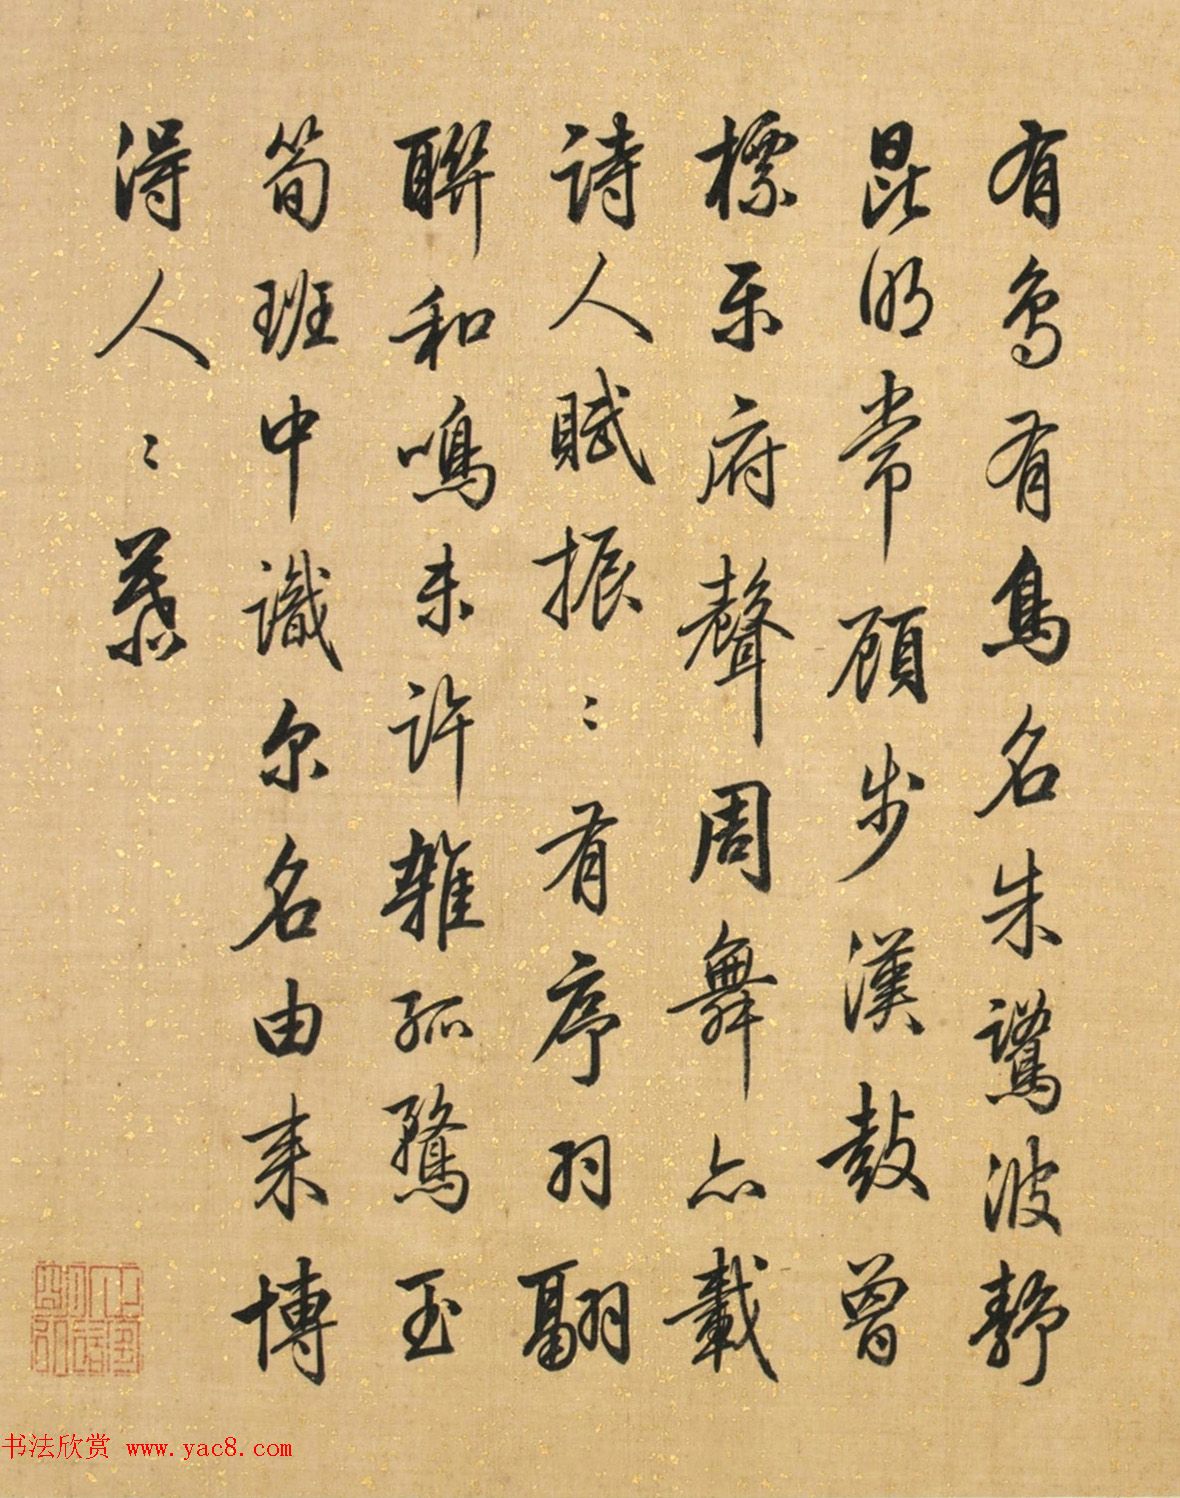 有鳥有鳥名朱鷺波靜
昆明常顧步漢鼓曾
標樂府聲周舞亦載
詩人賦振〻有序羽翮
聯和鳴未許雜孤鶩玉
筍班中識尔名由来博
得人〻慕
书法欣赏 www.yac8.com